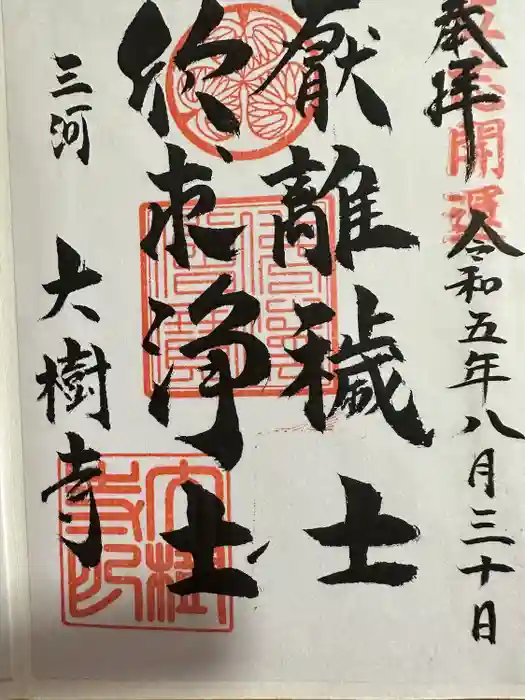 奉拝
開運
令和五年八月三十日
厭離穢土
欣求浄土
三河
大樹寺